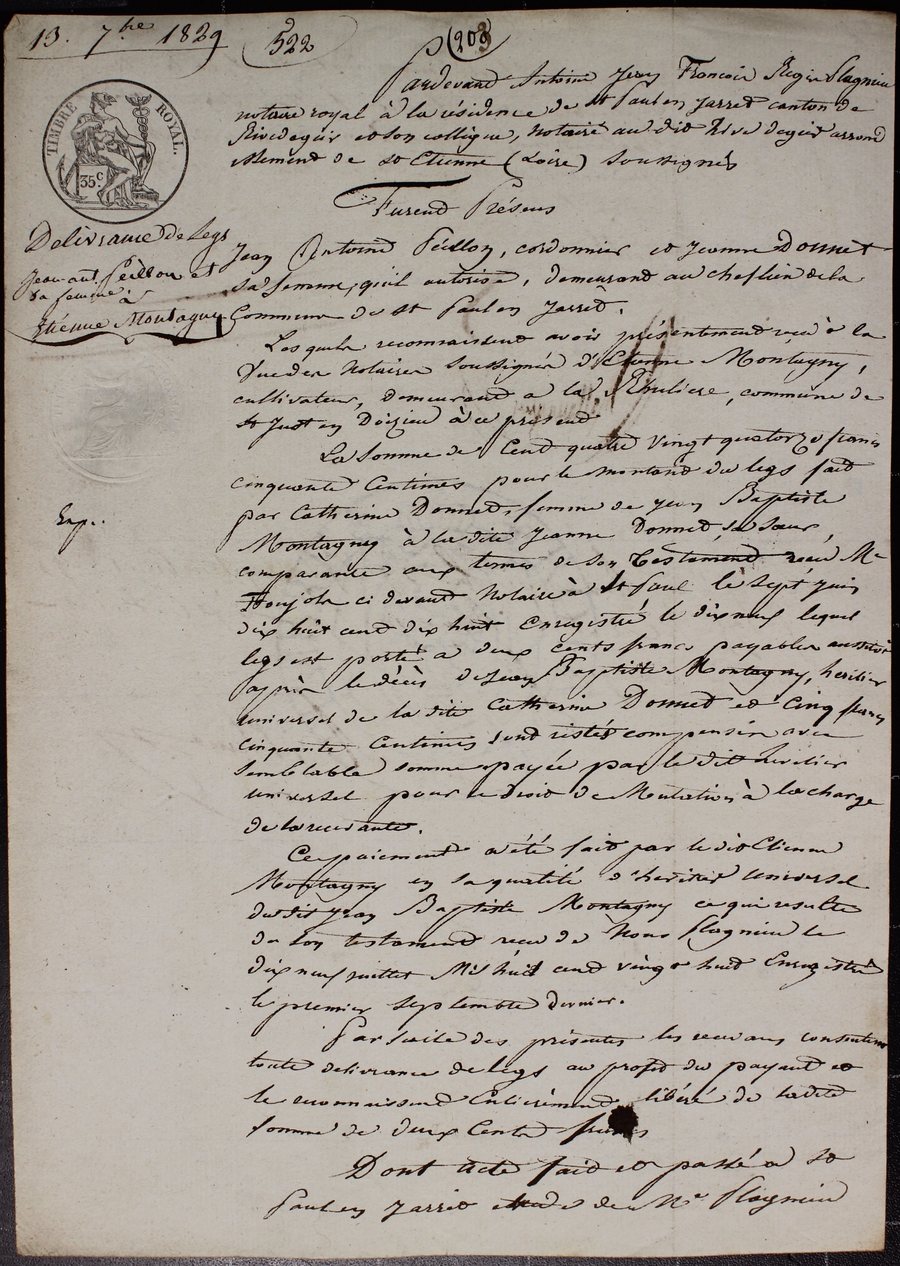 13. 7bre 1829
522
203
Pardevant Antoine Jean François Régis Flagnieu
notaire royal à la résidence de st Paul en Jarret canton de
Rivedegier et son collègue, notaire au dit Rive de gier arrond
issement de st Etienne (Loire) soussignés
TIMBRE ROYAL.
35 C
Furent Présens
Délivrance de Legs
Jean ant. Peillon et
sa femme
à
Etienne Montagny
Jean Antoine Peillon, cordonnier et Jeanne Donnet
sa femme, qu'il autorise, demeurant au chef lieu de la
Commune de st Paul en Jarret.
Lesquels reconnaissent avoir présentement reçu à la
Vue des Notaires soussignés d'Etienne Montagny,
cultivateur, demeurant a la commune de
st Just en Doizieu à ce présent
La Somme de Cent quatre vingt quatorze francs
cinquante Centimes pour le montant du legs fait
par Catherine Donnet, femme de Jean Baptiste
Exp.
Montagny à la dite Jeanne Donnet, sa sœur,
comparante aux termes de son testament reçu Me
ci devant Notaire à st Paul le sept juin
dix huit cent dix huit Enregistré le dix neuf lequel
legs est porté a deux cents francs payables aussitôt
après le décès de Jean Baptiste Montagny, héritier
universel de la dite Catherine Donnet et Cinq francs
cinquante Centimes sont restés compensés avec
semblable somme payée par le dit héritier
universel pour le Droit de Mutation à la charge
de la recevante.
Ce paiement a été fait par le dit Etienne
Montagny en sa qualité d'héritier universel
du dit Jean Baptiste Montagny ce qui resulte
de son testament reçu de Nous Flagnieu le
dix neuf juillet Mil huit cent vingt huit Enregistré
le premier septembre dernier.
Par suite des présentes les recevans consentent
toute délivrance de legs au profit du payant et
le reconnaissent Entièrement libéré de ladite
somme de deux Cents francs
Dont acte fait et passé a st
Paul en Jarret étude de Me Flagnieu